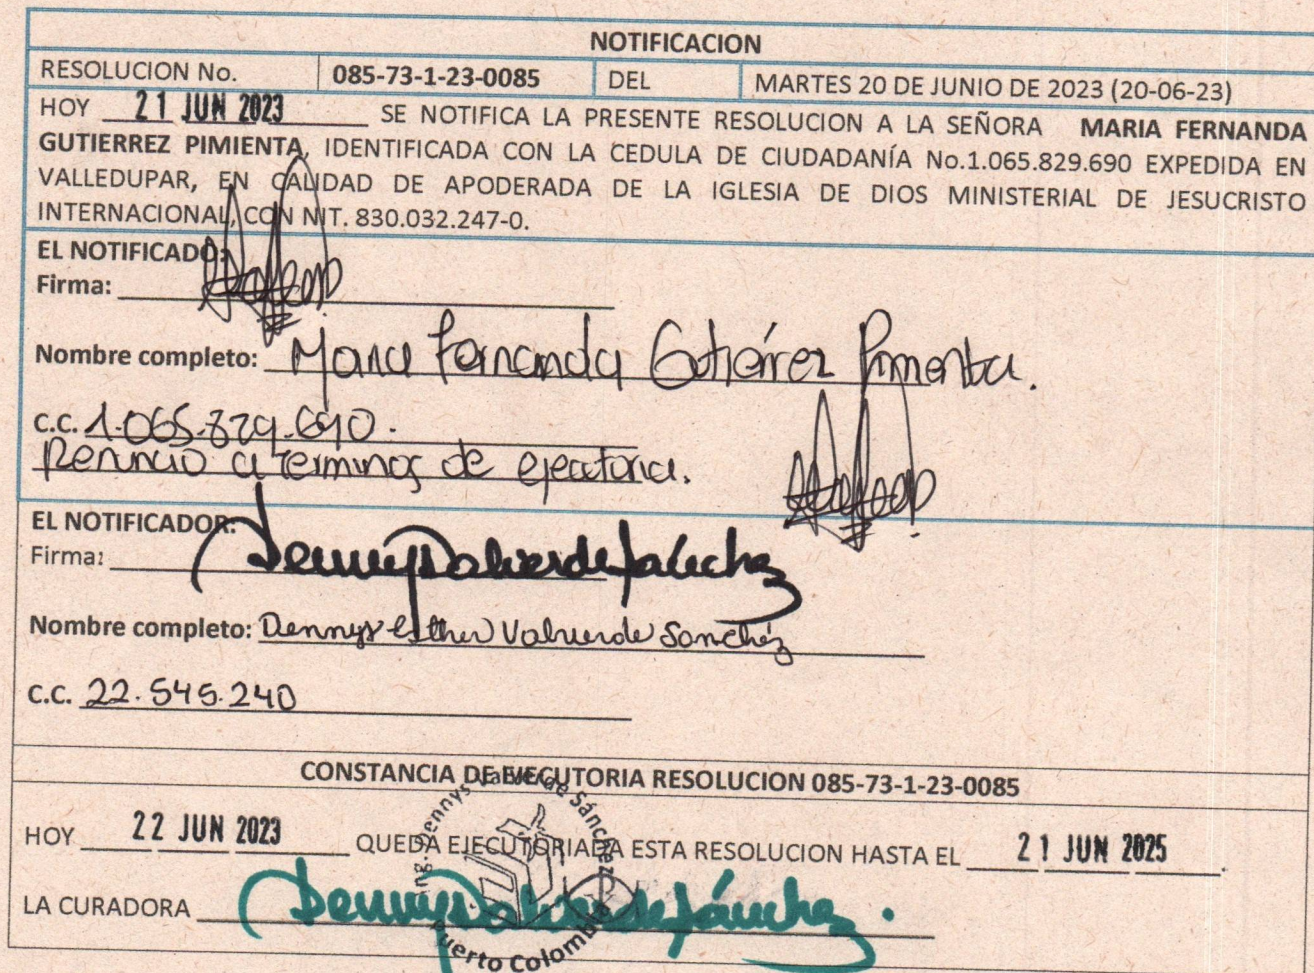 NOTIFICACION
RESOLUCION No. 085-73-1-23-0085 DEL MARTES 20 DE JUNIO DE 2023 (20-06-23)
HOY 21 JUN 2023 SE NOTIFICA LA PRESENTE RESOLUCION A LA SEÑORA MARIA FERNANDA
GUTIERREZ PIMIENTA, IDENTIFICADA CON LA CEDULA DE CIUDADANÍA No.1.065.829.690 EXPEDIDA EN
VALLEDUPAR, EN CALIDAD DE APODERADA DE LA IGLESIA DE DIOS MINISTERIAL DE JESUCRISTO
INTERNACIONAL, CON NIT. 830.032.247-0.
EL NOTIFICADO:
Firma:
Nombre completo: Maria Fernanda Gutiérrez Pimienta.
c.c. 1.065.829.690.
Renuncio a terminos de ejecutoria.
EL NOTIFICADOR:
Firma: Dennys Valverde Sánchez
Nombre completo: Dennys Esther Valverde Sanchéz
c.c. 22.545.240
CONSTANCIA DE EJECUTORIA RESOLUCION 085-73-1-23-0085
HOY 22 JUN 2023 QUEDA EJECUTORIADA ESTA RESOLUCION HASTA EL 21 JUN 2025
LA CURADORA Dennys Valverde Sánchez.
Ing. Dennys Valverde Sánchez
Puerto Colombia